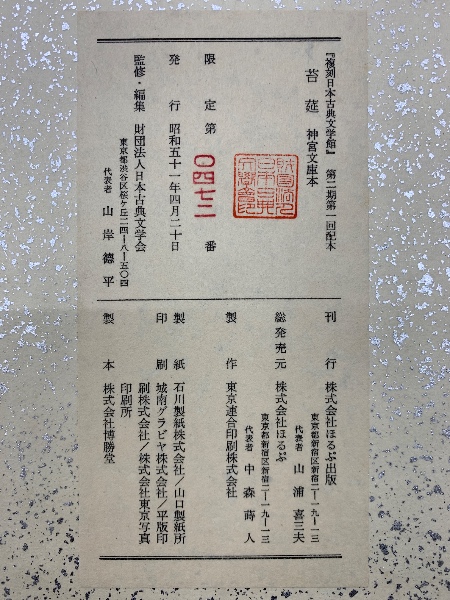 『複刻日本古典文学館』 第二期第一回配本
苔莚 神宮文庫本
限定第 〇四七二 番
発行 昭和五十一年四月二十日
監修・編集 財団法人日本古典文学会
東京都渋谷区桜ヶ丘二四ー八ー五〇四
代表者 山岸德平
刊行 株式会社ほるぷ出版
東京都新宿区新宿二ー一九ー一三
代表者 山浦喜三夫
総発売元 株式会社ほるぷ
東京都新宿区新宿二ー一九ー一三
代表者 中森蒔人
製作 東京連合印刷株式会社
製紙 石川製紙株式会社/山口製紙所
印刷 城南グラビヤ株式会社/平版印
刷株式会社/株式会社東京写真
印刷所
製本 株式会社博勝堂